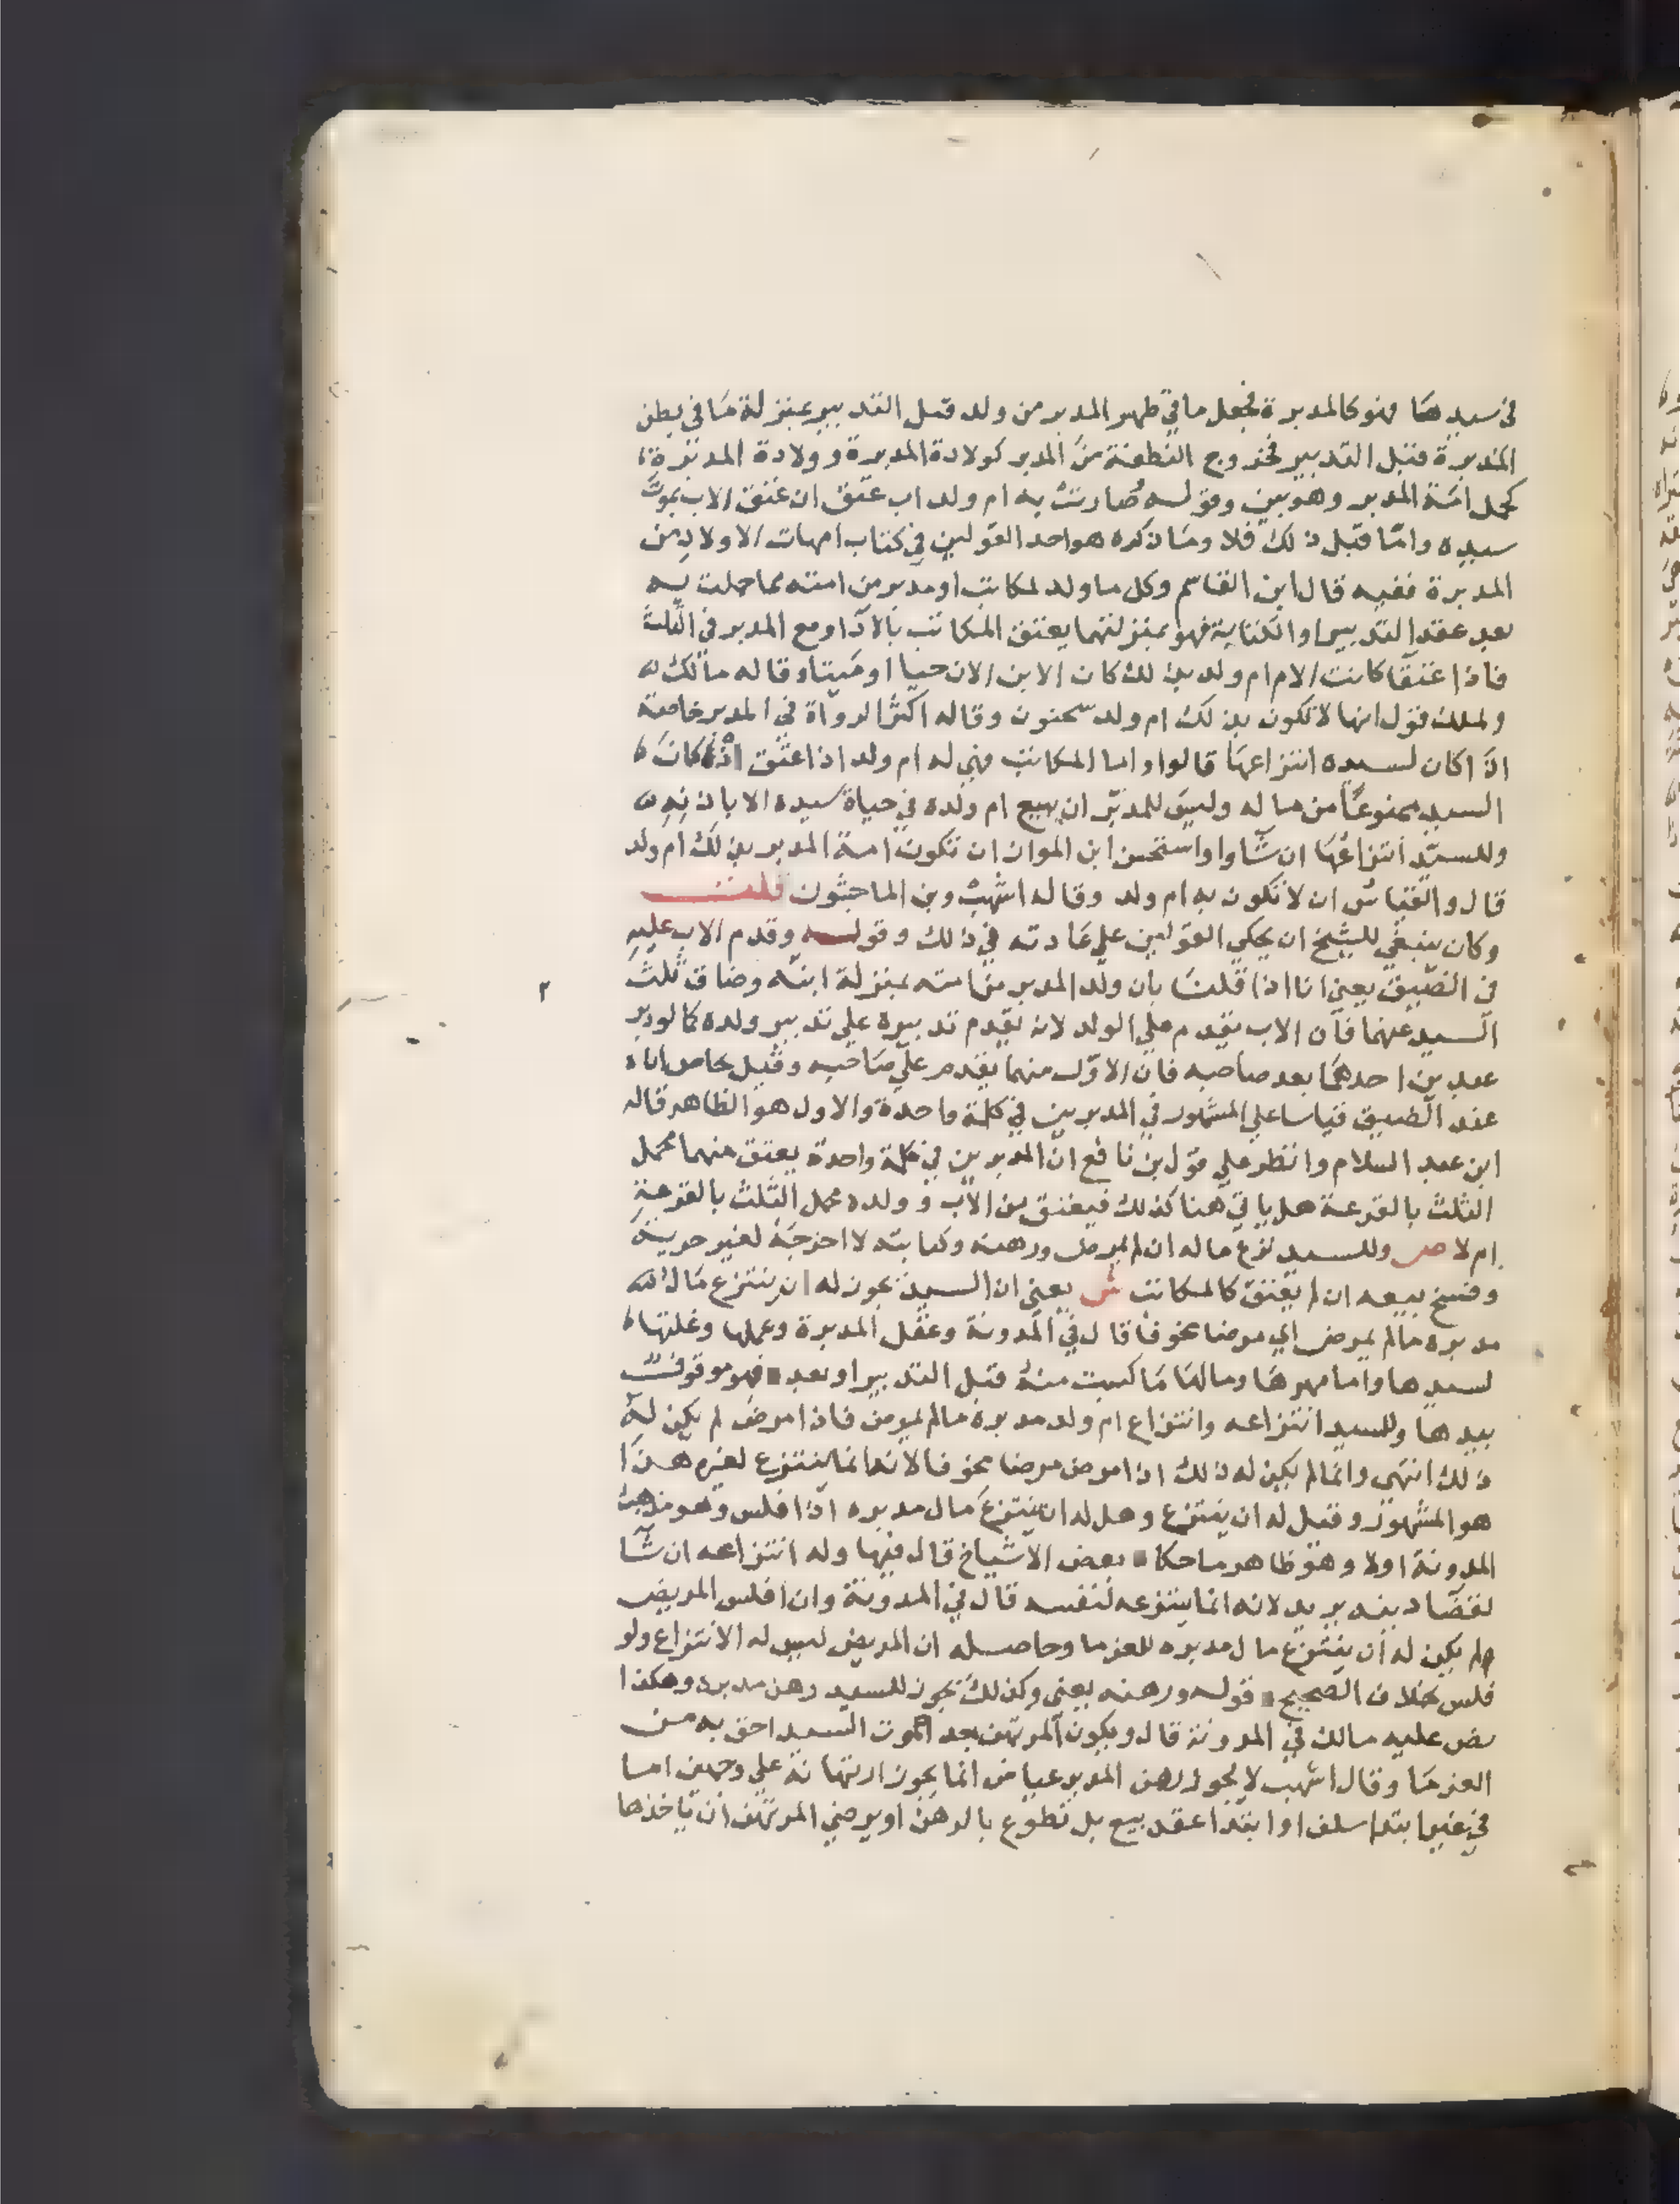 في سيدها فهو كالمدبرة فجعل ما في ظهر المدبر من ولد قبل التدبير بمنزلة ما في بطن
المدبرة قبل التدبير فخروج النطفة من المدبر كولادة المدبرة و ولادة المدبرة
كحمل امة المدبر وهو بين وقوله صارت به ام ولد اب عتق ان عتق الاب بموت
سيده واما قبل ذلك فلا وما ذكره هو احد القولين في كتاب امهات الاولاد من
المدبرة ففيه قال ابن القاسم وكل ما ولد لمكاتب او مدبر من امته مما حملت به
بعد عقد التدبير او الكتابة فهو بمنزلتهما يعتق المكاتب بالادا ومع المدبر في الثلث
فاذا عتقا كانت الام ام ولد بذلك كان الابن الان حيا او ميتا وقاله مالك
ولملك قول انها لا تكون بذلك ام ولد سحنون وقاله اكثر الرواة في المدبر خاصة
اذا كان لسيده انتزاعها قالوا واما المكاتب فهي له ام ولد اذا عتق اذ كان
السيد ممنوعا من ماله وليس للمدبر ان يبيع ام ولده في حياة سيده الا باذنه
وللسيد انتزاعها ان شاوا واستحسن ابن المواز ان تكون امة المدبر بذلك ام ولد
قال والقياس ان لا تكون به ام ولد وقاله اشهب وبن الماجشون قلت
وكان ينبغي للشيخ ان يحكي القولين على عادته في ذلك وقوله وقدم الاب عليه
في الضيق يعني انا اذا قلنا بان ولد المدبر من امته بمنزلة ابنه وضاق ثلث
السيد عنهما فان الاب يقدم على الولد لانه تقدم تدبيره على تدبير ولده كما لو دبر
عبدين احدهما بعد صاحبه فان الاول منهما يقدم على صاحبه وقيل يحاص اباه
عند الضيق قياسا على المشهور في المدبرين في كلمة واحدة والاول هو الظاهر قاله
ابن عبد السلام وانظر على قول بن نافع ان المدبرين في كلمة واحدة يعتق منهما محمل
الثلث بالقرعة هل ياتي هنا كذلك فيعتق من الاب و ولده محمل الثلث بالقرعة
ام لا ص وللسيد نزع ماله ان لم يمرض ورهنه وكتابته لا اخراجه لغير حرية
وفسخ بيعه ان لم يعتق كالمكاتب ش يعني ان السيد يجوز له ان ينتزع مال
مدبره ما لم يمرض اي مرضا مخوفا قال في المدونة وعقل المدبرة وعملها وغلتها
لسيدها واما مهرها ومالها ما كسبت منه قبل التدبير او بعد فهو موقوف
بيدها وللسيد انتزاعه وانتزاع ام ولد مدبره ما لم يمرض فاذا مرض لم يكن له
ذلك انتهى وانما لم يكن له ذلك اذا مرض مرضا مخوفا لانه انما ينتزع لغيره هذا
هو المشهور وقيل له ان ينتزع وهل له ان ينتزع مال مدبره اذا فلس وهو مذهب
المدونة اولا وهو ظاهر ما حكا بعض الاشياخ قال فيها وله انتزاعه ان شا
لقضا دينه يريد لانه انما ينتزعه لنفسه قال في المدونة وان افلس المريض
لم يكن له ان ينتزع مال مدبره للغرما وحاصله ان المريض ليس له الانتزاع ولو
فلس بخلاف الصحيح قوله ورهنه يعني وكذلك يجوز للسيد رهن مدبره وهكذا
نص عليه مالك في المدونة قال ويكون المرتهن بعد الموت السيد احق به من
الغرما وقال اشهب لا يجوز رهن المدبر عياض انما يجوز ارتهانه على وجهين اما
في غير ابتدا سلف او ابتدا عقد بيع بل تطوع بالرهن او يرضي المرتهن ان ياخذها
٢